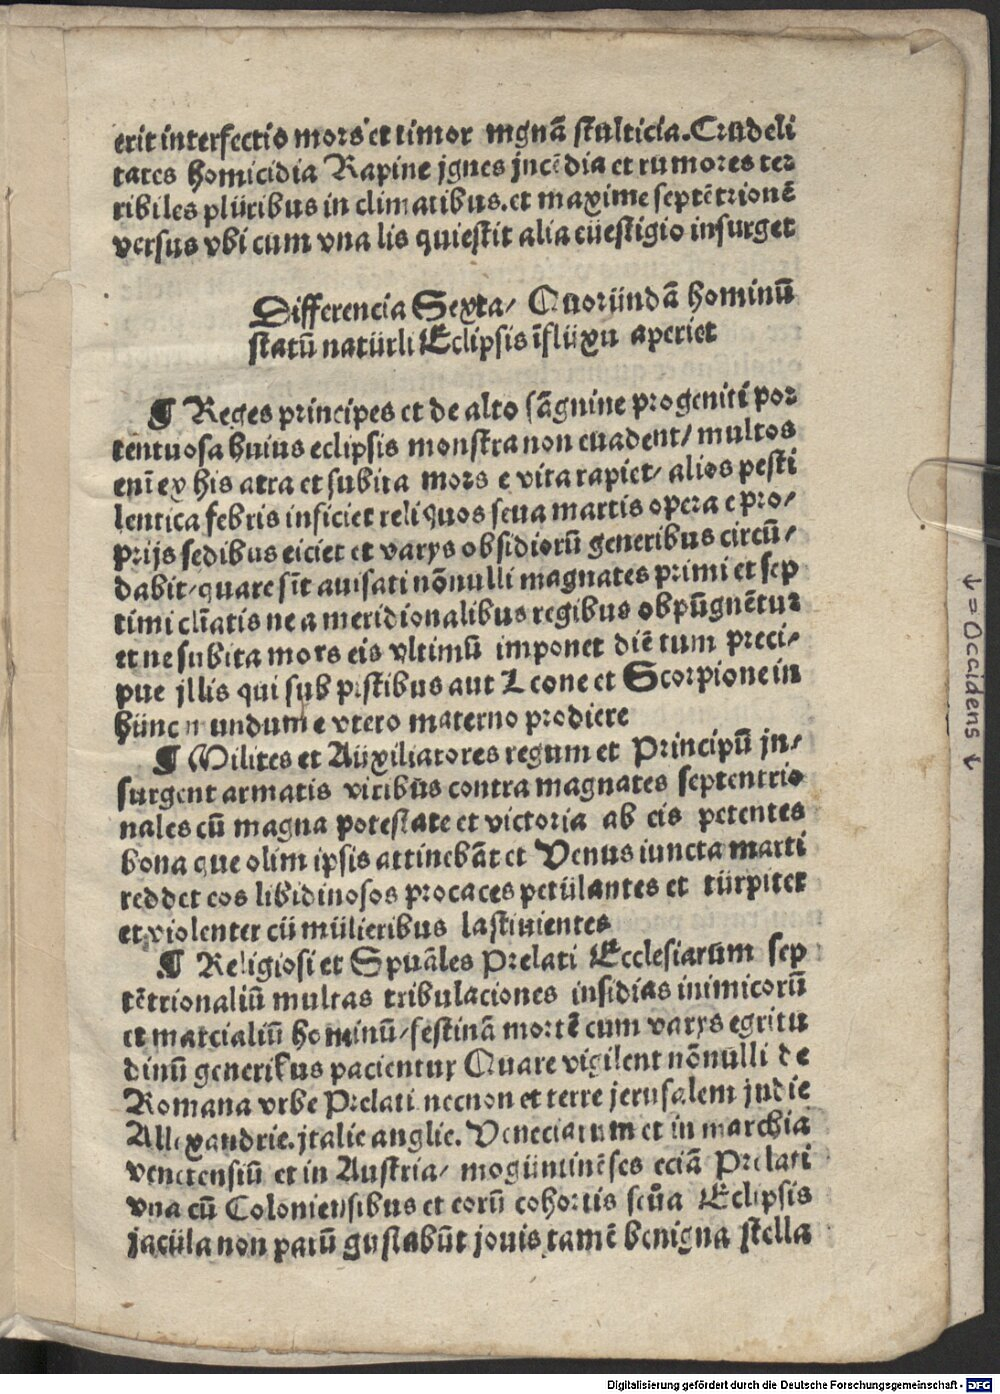 erit interfectio mors et timor mgnā stulticia. Crudeli
tates homicidia Rapine jgnes jncēdia et rumores ter
ribiles plüribus in climatibus. et maxime septētrionē
versus vbi cum vna lis quiestit alia eüestigio insurget
Differencia Sexta/ Quoründā hominū
statū natürli Eclipsis īflüxu aperiet
¶ Reges principes et de alto sāgnine progeniti por
tentuosa huius eclipsis monstra non euadent/ multos
enī ex his atra et subita mors e vita rapiet/ alios pesti
lentica febris inficiet reliquos seua martis opera e pro/
prijs sedibus eiciet et varys obsidiorū generibus circū/
dabit/ quare sīt auisati nōnulli magnates primi et sep
timi clīatis ne a meridionalibus regibus obpūgnētur
et ne subita mors eis vltimū imponet diē tum preci/
pue jllis qui sub pistibus aut Leone et Scorpione in
hünc mundum e vtero materno prodiere
¶ Milites et Aüxiliatores regum et Principū jn/
surgent armatis viribūs contra magnates septentrio
nales cū magna potestate et victoria ab eis petentes
bona que olim ipsis attinebāt et Venus iuncta marti
reddet eos libidinosos procaces petülantes et türpiter
et violenter cū mülieribus lastiuientes
¶ Religiosi et Spuāles Prelati Ecclesiarum sep
tētrionaliū multas tribulaciones insidias inimicorū
et marcialiū hominū/ festinā mortē cum varys egritu
dinū generibus pacientur Quare vigilent nōnulli de
Romana vrbe Prelati necnon et terre jerusalem judie
Allexandrie. jtalie anglie. Veneciarum et in marchia
venetensiū et in Austria/ mogüntinēses eciā Prelati
vna cū Coloniensibus et eorū cohortis seůa Eclipsis
jacüla non parū gustabūt jouis tamē benigna stella
↓ = Occidens ↓
Digitalisierung gefördert durch die Deutsche Forschungsgemeinschaft - DFG